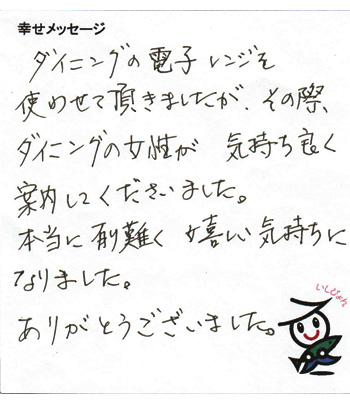 幸せメッセージ
ダイニングの電子レンジを
使わせて頂きましたが、その際、
ダイニングの女性が 気持ち良く
案内してくださいました。
本当に有難く 嬉しい気持ちに
なりました。
ありがとうございました。
いしぴょん